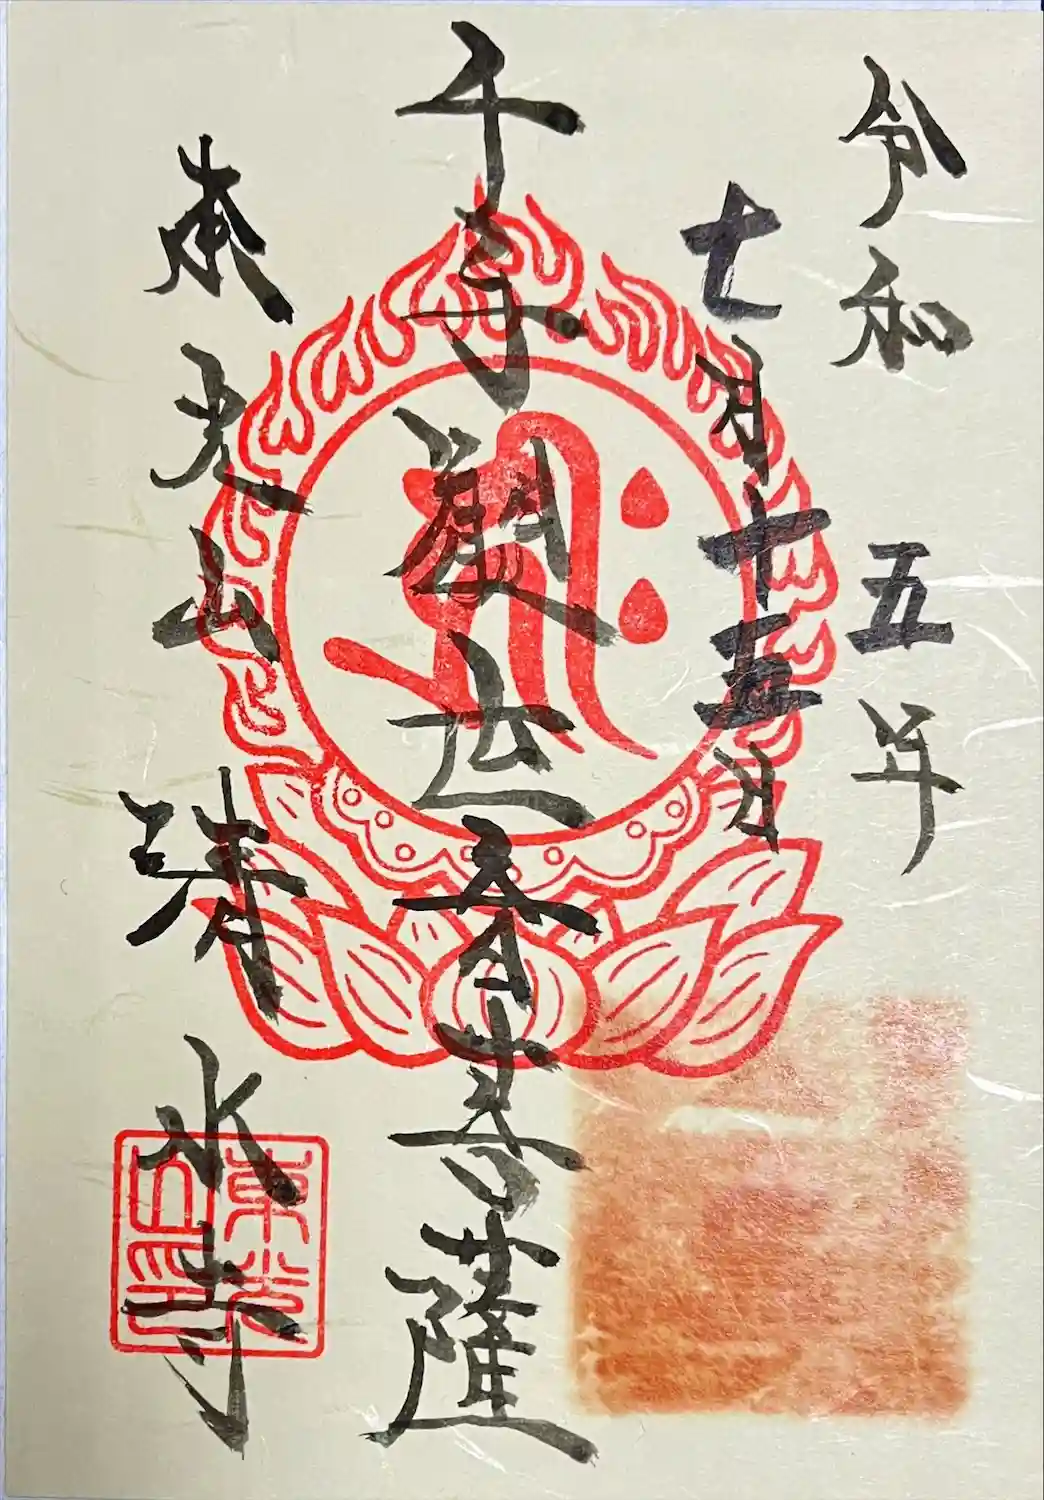 令和五年
七月十五日
千手觀世音菩薩
東光山 清水寺
東光
ह्रीः